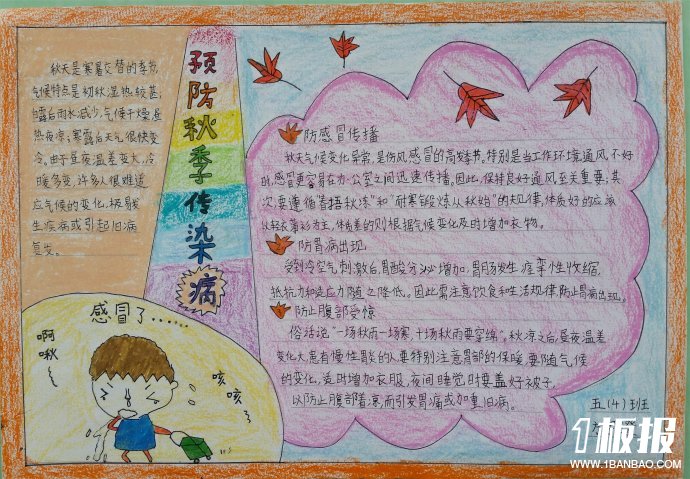 预防秋季传染病
秋天是寒暑交替的季节,
气候特点是初秋湿热较甚,
白露后雨水减少,气候干燥,昼
热夜凉;寒露后天气很快变
冷。由于昼夜温差变大,冷
暖多变,许多人很难适
应气候的变化,极易
生疾病或引起旧病
复发。
感冒了……
啊
啾
咳
咳
防感冒传播
秋天气候变化异常,是伤风感冒的高发季节。特别是当工作环境通风不好
时,感冒更容易在办公室之间迅速传播。因此,保持良好通风至关重要;其
次,要遵循“春捂秋冻”和“耐寒锻炼从秋始”的规律,体质好的应
以轻衣薄衫为主,体质差的则根据气候变化及时增加衣物。
防胃病出现
受到冷空气刺激后,胃酸分泌增加,胃肠发生痉挛性收缩,
抵抗力和适应力随之降低。因此需注意饮食和生活规律,防止胃病出现。
防止腹部受凉
俗话说“一场秋雨一场寒,十场秋雨要穿绵”。秋凉之后,昼夜温差
变化大,患有慢性胃炎的人要特别注意胃部的保暖,要随气候
的变化,适时增加衣服,夜间睡觉时要盖好被子,
以防止腹部着凉而引发胃痛或加重旧病。
五(4)班
1板报
WWW.1BANBAO.COM